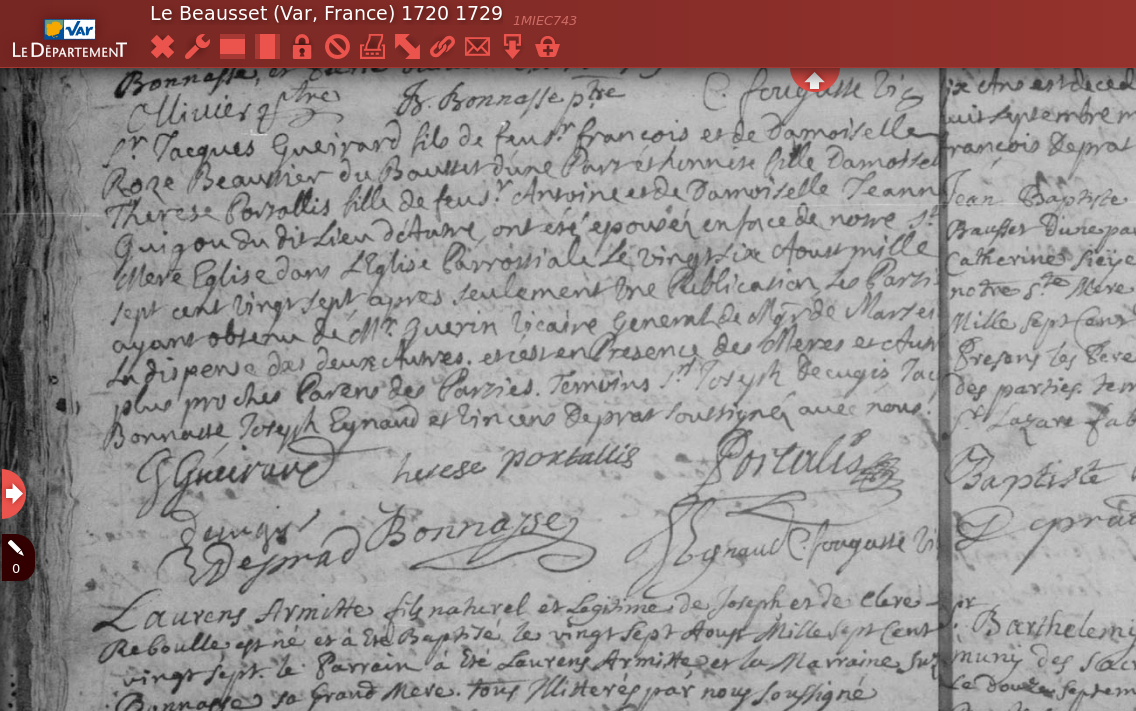 Le Beausset (Var, France) 1720 1729 1MIEC743
VAR
LE DÉPARTEMENT
0
Bonnasse, et
Ollivier ptre B. Bonnasse ptre C. fougasse Vic
Sr. Jacques Gueirard fils de feu Sr francois et de Damoiselle
Roze Beausset du Bausset d'une Part et honneste fille Damoisel
Therese Portallis fille de feu Sr. Antoine et de Damoiselle Jeann
Guigou du dit Lieu d'Autre, ont été epousés en face de notre Ste
Mere Eglise dans L'Eglise Parroissiale Le vingt six Aoust mille
sept cent vingt sept apres seulement Une Publication, Les Parti
ayant obtenu de Mr. Guerin Vicaire General de Mgr de Marsei
La dispense des deux Autres. et c'est en Presence des Meres et Autr
plus proches Parens des Parties. Temoins Sr Joseph Decugis Jac
Bonnasse Joseph Eynaud et Vincens Deprat soussignés avec nous.
G Gueirard therese portallis Portalis
Decugis Bonnasse
Desprad Eynaud C. fougasse Vi
Laurens Armitte fils naturel et Legitime de Joseph et de Clere
Reboulle est né et à Eté Baptisé le vingt Sept Aoust Mille Sept Cent
vingt Sept. le Parrain à Eté Laurens Armitte et la Marraine Suz
Bonnasse sa Grand Mere. tous Illiterés par nous Soussigné
ix Ans est deced
uit septembre m
francois Deprat
Jean Baptiste
Bausset D'une pa
Catherine
notre Ste Mere
Mille Sept Cent
Presens les Pere
des parties. tem
Sr. Lazare fab
Baptiste
Depra
Barthelemy
muny des Sac
Le douze Septem